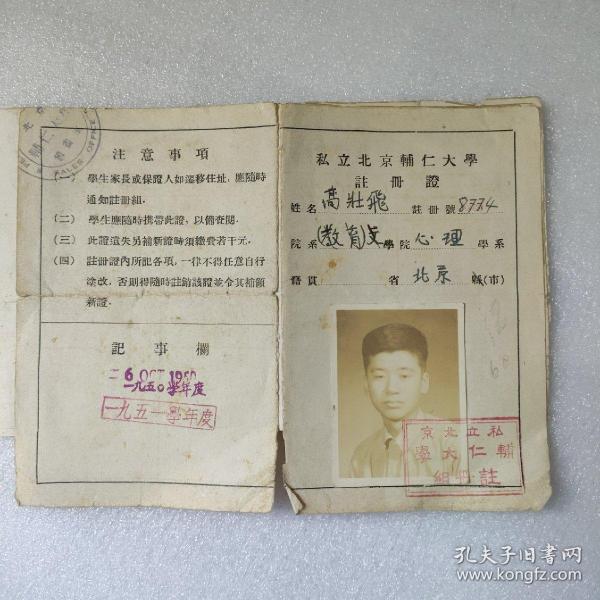 注意事項
(一) 學生家長或保證人如遷移住址，應隨時
通知註冊組.
(二) 學生應隨時携帶此證，以備查閱.
(三) 此證遺失另補新證時須繳費若干元.
(四) 註冊證內所記各項，一律不得任意自行
塗改，否則得隨時註銷該證並令其補領
新證.
記事欄
6 OCT 1950
一九五〇學年度
一九五一學年度
私立北京輔仁大學
註冊證
姓名 高壯飛 註冊號 8774
院系 教育 學院 心理 學系
籍貫 省 北京 縣(市)
私立北京
輔仁大學
註冊組
孔夫子旧书网
www.kongfz.com